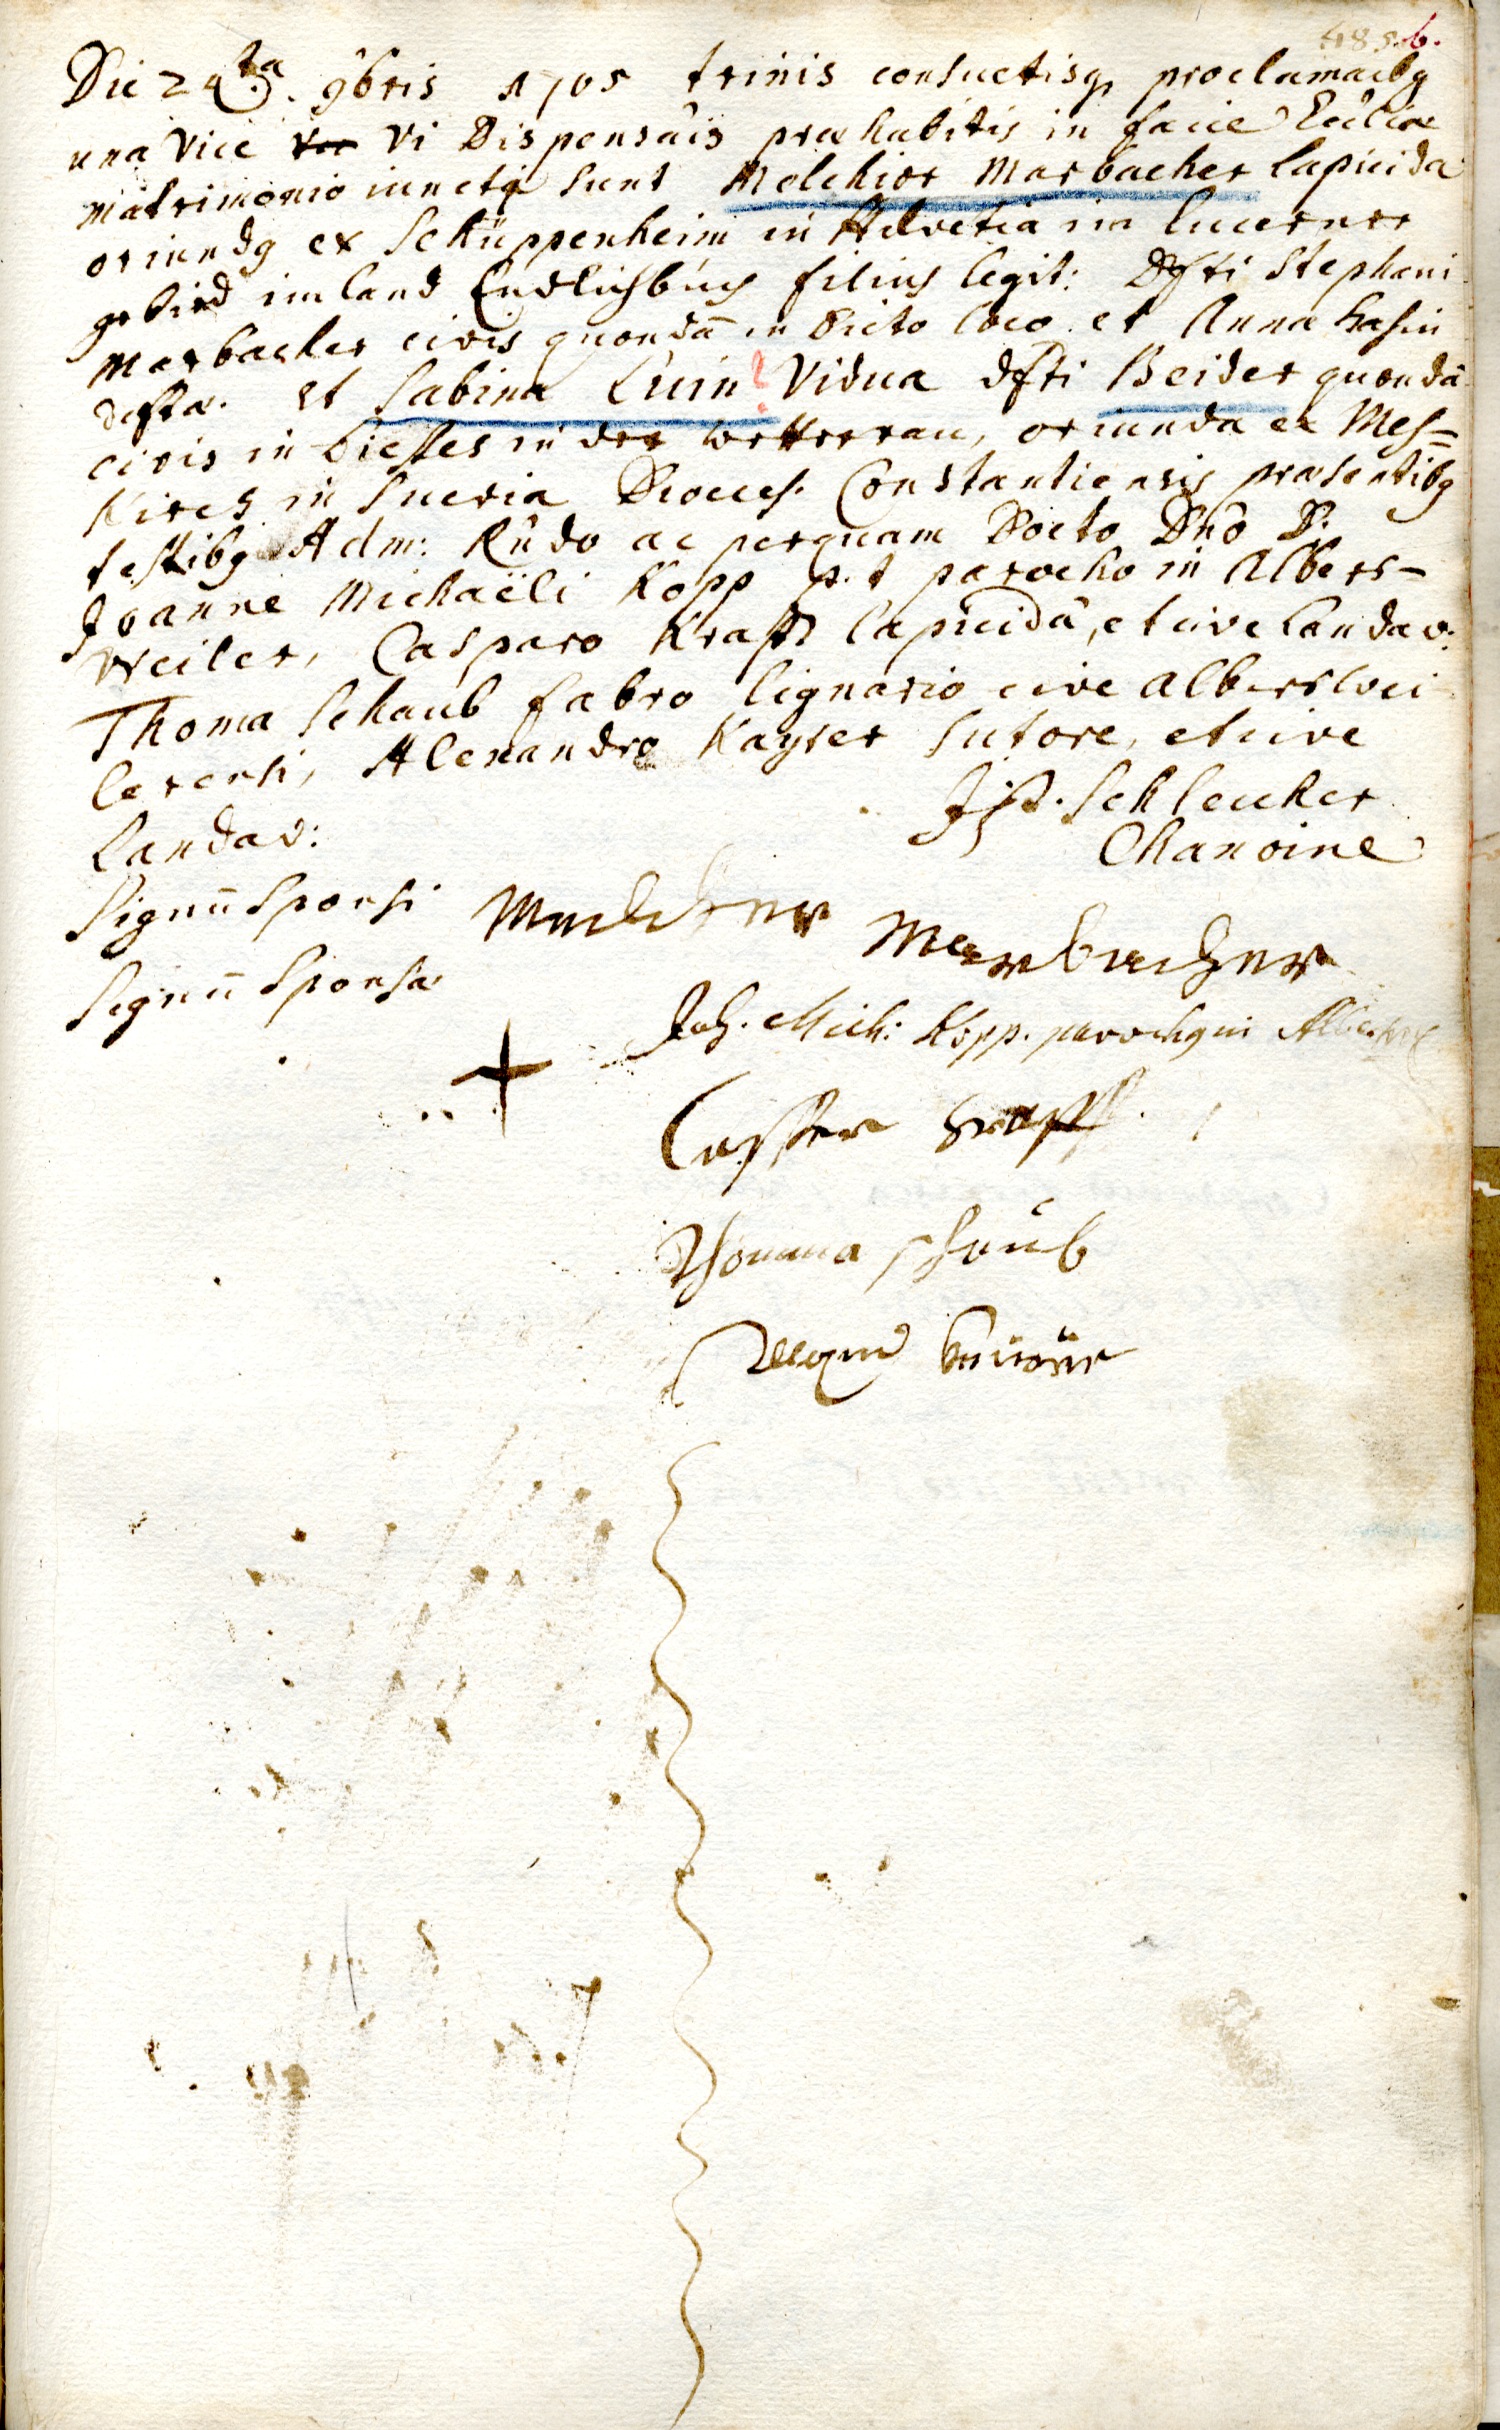 485.b.
Die 24ta. 9bris 1705 trinis consuetisq proclamaõibq
una vice vi Dispensaõis præhabitis in facie Eccliæ
matrimonio iunctq sunt Melchior Marbacher lapicida
oriundq ex Schüppenheim in Helvetia im lucerner
gebied im land Endlichbuch filius legit: Dfti Stephani
Marbacher civis quondã in dicto loco et Anna hasin
defta. et Sabina Luin ? Vidua dfti Beider quondã
civis in in der wetterau, oriunda ex Mes=
kirch in Suevia Dioeces. Constantiensis præsentibq
testibq Adm: Rndo ac perquam Docto Dno D.
Joanne Michaëli Kopp p.t parocho in Albers-
weiler, Casparo Krafft lapicida, et cive Landav:
Thoma Schaub fabro lignario cive albersswei
lerensi, Alexandro Kayser Sutore, et cive
Landav:
J. Schleucher
Chanoine
Signũ Sponsi Melcher Marbacher
Signũ Sponsæ +
Joh. Mich: Kopp. parochq in
Casper Krafft
Thoma schaub